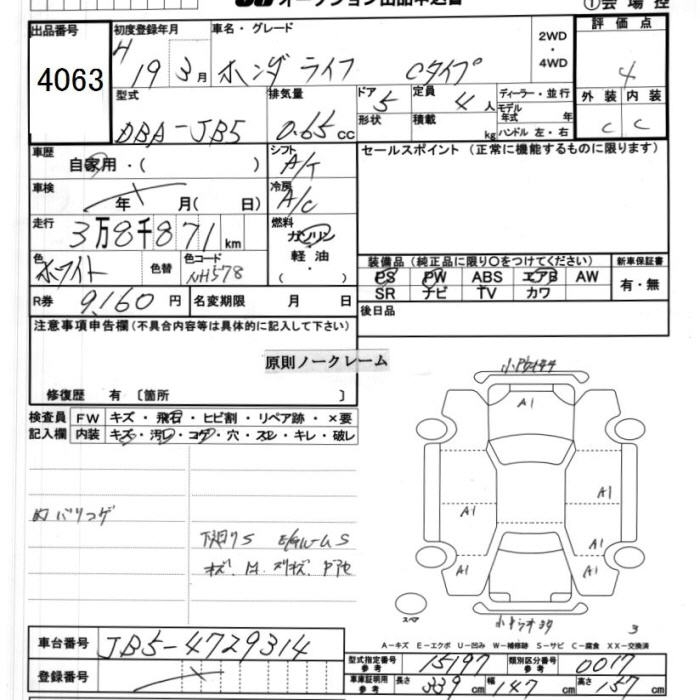 オークション出品申込書
①会場控
出品番号 4063
初度登録年月 H 19 3月
車名・グレード ホンダ ライフ Cタイプ
2WD・4WD
評価点 4
型式 DBA-JB5
排気量 0.65 CC
ドア 5
形状
定員 4人
積載 kg
ディーラー・並行
モデル年式 年
ハンドル 左・右
外装 C
内装 C
車歴 自家用・( )
シフト A/T
セールスポイント (正常に機能するものに限ります)
車検 年 月( 日)
冷房 A/C
走行 3万8千871km
燃料 ガソリン 軽油 ( )
色 ホワイト 色替
色コード NH578
装備品 (純正品に限り〇をつけてください)
新車保証書 有・無
PS PW ABS エアB AW
SR ナビ TV カワ
R券 9,160円
名変期限 月 日
後日品
注意事項申告欄(不具合内容等は具体的に記入して下さい)
原則ノークレーム
修復歴 有 〔箇所 〕
検査員記入欄
FW キズ・飛石・ヒビ割・リペア跡・×要
内装 キズ・汚レ・コゲ・穴・スレ・キレ・破レ
内バリコゲ
下廻りS
A1
A1
A1
A1
A1
A1
スペア
3
A－キズ E－エクボ U－凹み W－補修跡 S－サビ C－腐食 XX－交換済
車台番号 JB5-4729314
登録番号
型式指定番号 参考 15197
類別区分番号 参考 0017
車庫証明用 参考 長さ 339cm 幅 147cm 高さ 157cm